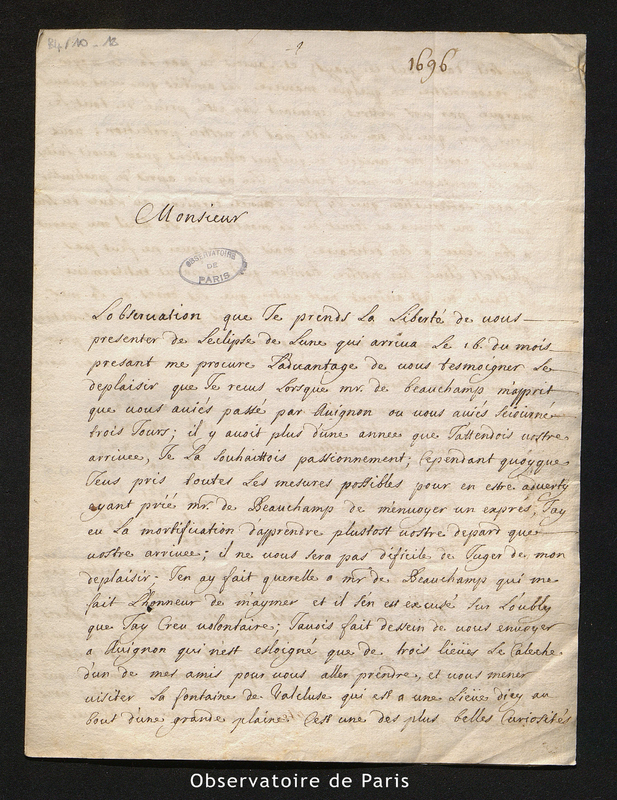 B4/10-18
1
1696
Monsieur
OBSERVATOIRE
DE
PARIS
Lobservation que Je prends La Liberté de vous
presenter de Leclipse de Lune qui arriva Le 16. du mois
presant me procure Laduantage de vous tesmoigner Le
deplaisir que Je reçus Lorsque mr. de beauchamp m'apprit
que vous auiés passé par Auignon ou vous auiés Seiourné
trois Jours; il y auoit plus d'une annee que J'attendois vostre
arrivee, Je La souhaittois passionnement; Cependant quoyque
J'eus pris toutes Les mesures possibles pour en estre aduerty
ayant prié mr. de Beauchamp de m'enuoyer un exprés, J'ay
eu La mortification d'apprendre plustost vostre depart que
vostre arrivee; il ne vous sera pas dificile de Juger de mon
deplaisir. J'en ay fait querelle a mr de Beauchamp qui me
fait L'honneur de m'aymer et il s'en est excusé sur L'oubly
que J'ay Creu volontaire; J'auois fait dessein de vous enuoyer
a Auignon qui n'est esloigné que de trois lieües Le Caleche
d'un de mes amis pour vous aller prendre, et vous mener
visiter La fontaine de Valcluse qui est a une Lieüe d'icy au
bout d'une grande plaine; C'est une des plus belles Curiosités
Observatoire de Paris